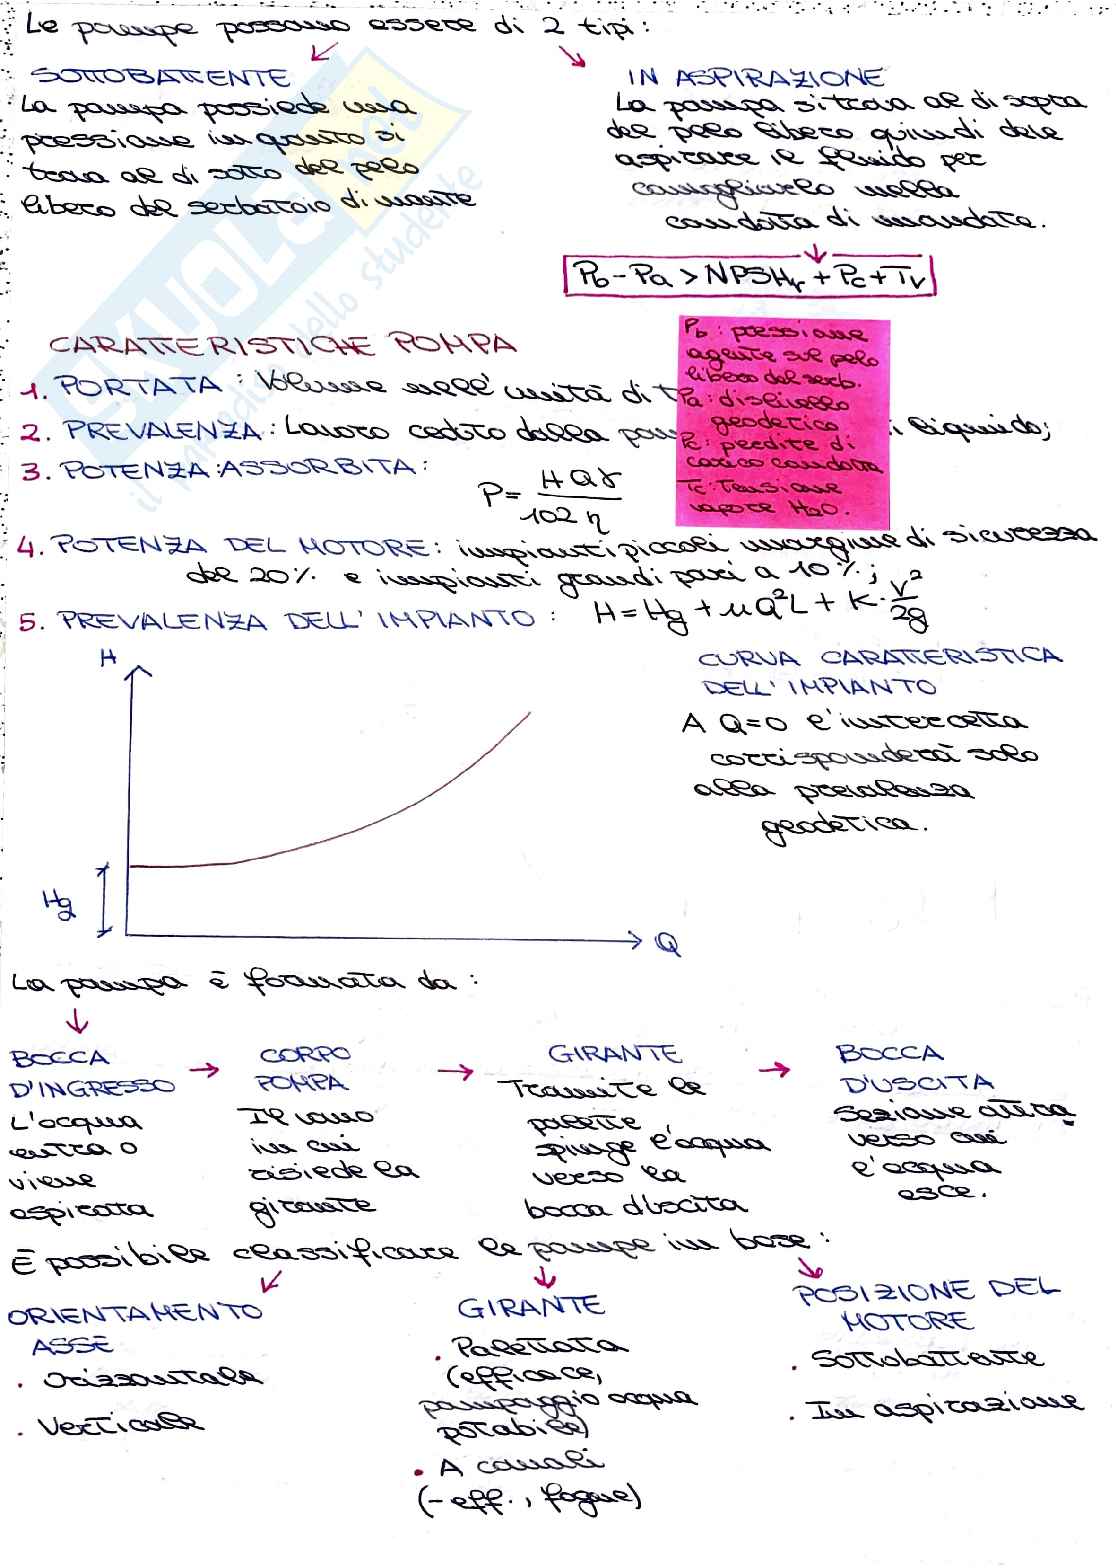 Le pompe possono essere di 2 tipi:
SOTTOBATTENTE
La pompa possiede una
pressione in quanto si
trova al di sotto del pelo
libero del serbatoio di monte
IN ASPIRAZIONE
La pompa si trova al di sopra
del pelo libero quindi deve
aspirare il fluido per
convogliarlo nella
condotta di mandata.
Pb - Pa > NPSHr + Pc + Tv
Pb: pressione
agente sul pelo
libero del serb.
Pa: dislivello
geodetico
Pc: perdite di
carico condotta
Tc: Tensione
vapore H2O.
CARATTERISTICHE POMPA
1. PORTATA: Volume nell'unità di t
2. PREVALENZA: Lavoro ceduto dalla pom i liquido;
3. POTENZA ASSORBITA: P = HQγ / 102 η
4. POTENZA DEL MOTORE: impianti piccoli margine di sicurezza
del 20% e impianti grandi pari a 10%;
5. PREVALENZA DELL'IMPIANTO: H = Hg + μQ²L + K · V²/2g
H
Hg
Q
CURVA CARATTERISTICA
DELL'IMPIANTO
A Q=0 l'intercetta
corrisponderà solo
alla prevalenza
geodetica.
La pompa è formata da:
BOCCA
D'INGRESSO
L'acqua
entra o
viene
aspirata
CORPO
POMPA
Il vano
in cui
risiede la
girante
GIRANTE
Tramite le
palette
spinge l'acqua
verso la
bocca d'uscita
BOCCA
D'USCITA
Sezione attiva
verso cui
l'acqua
esce.
È possibile classificare le pompe in base:
ORIENTAMENTO
ASSE
. Orizzontale
. Verticale
GIRANTE
. Palettata
(efficace,
pompaggio acqua
potabile)
. A canali
(- eff., fogne)
POSIZIONE DEL
MOTORE
. Sottobattente
. In aspirazione
SKUOLA.net
il paradiso dello studente